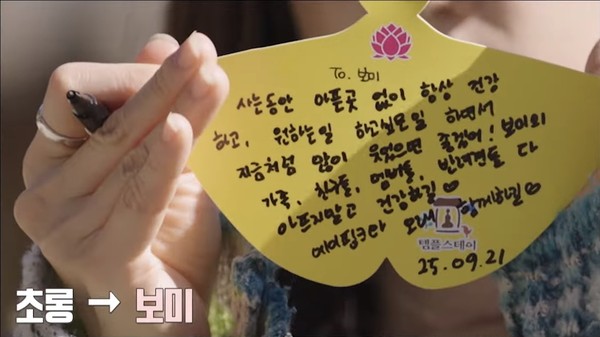 To. 보미
사는동안 아픈곳 없이 항상 건강
하고, 원하는일 하고싶은일 하면서
지금처럼 많이 웃었으면 좋겠어! 보미의
가족, 친구들, 멤버들, 반려견들 다
아프지말고 건강하길♡
에이핑크와 오래 함께하길♡
템플스테이
25.09.21
초롱 → 보미